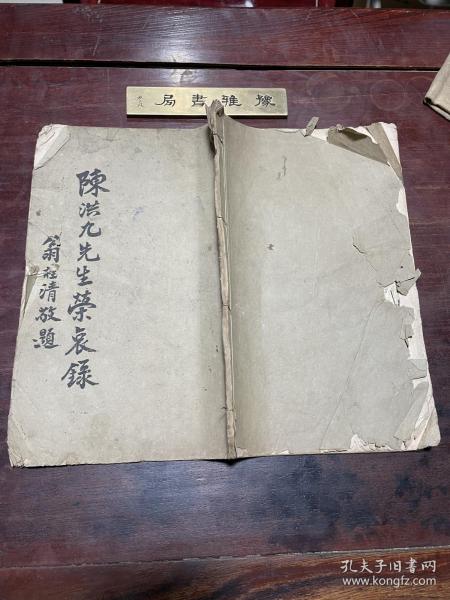 豫雅書局
陳洪九先生榮哀錄
翁桂清敬題
孔夫子旧书网
www.kongfz.com